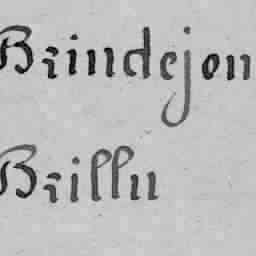 Brindejon
Brillu